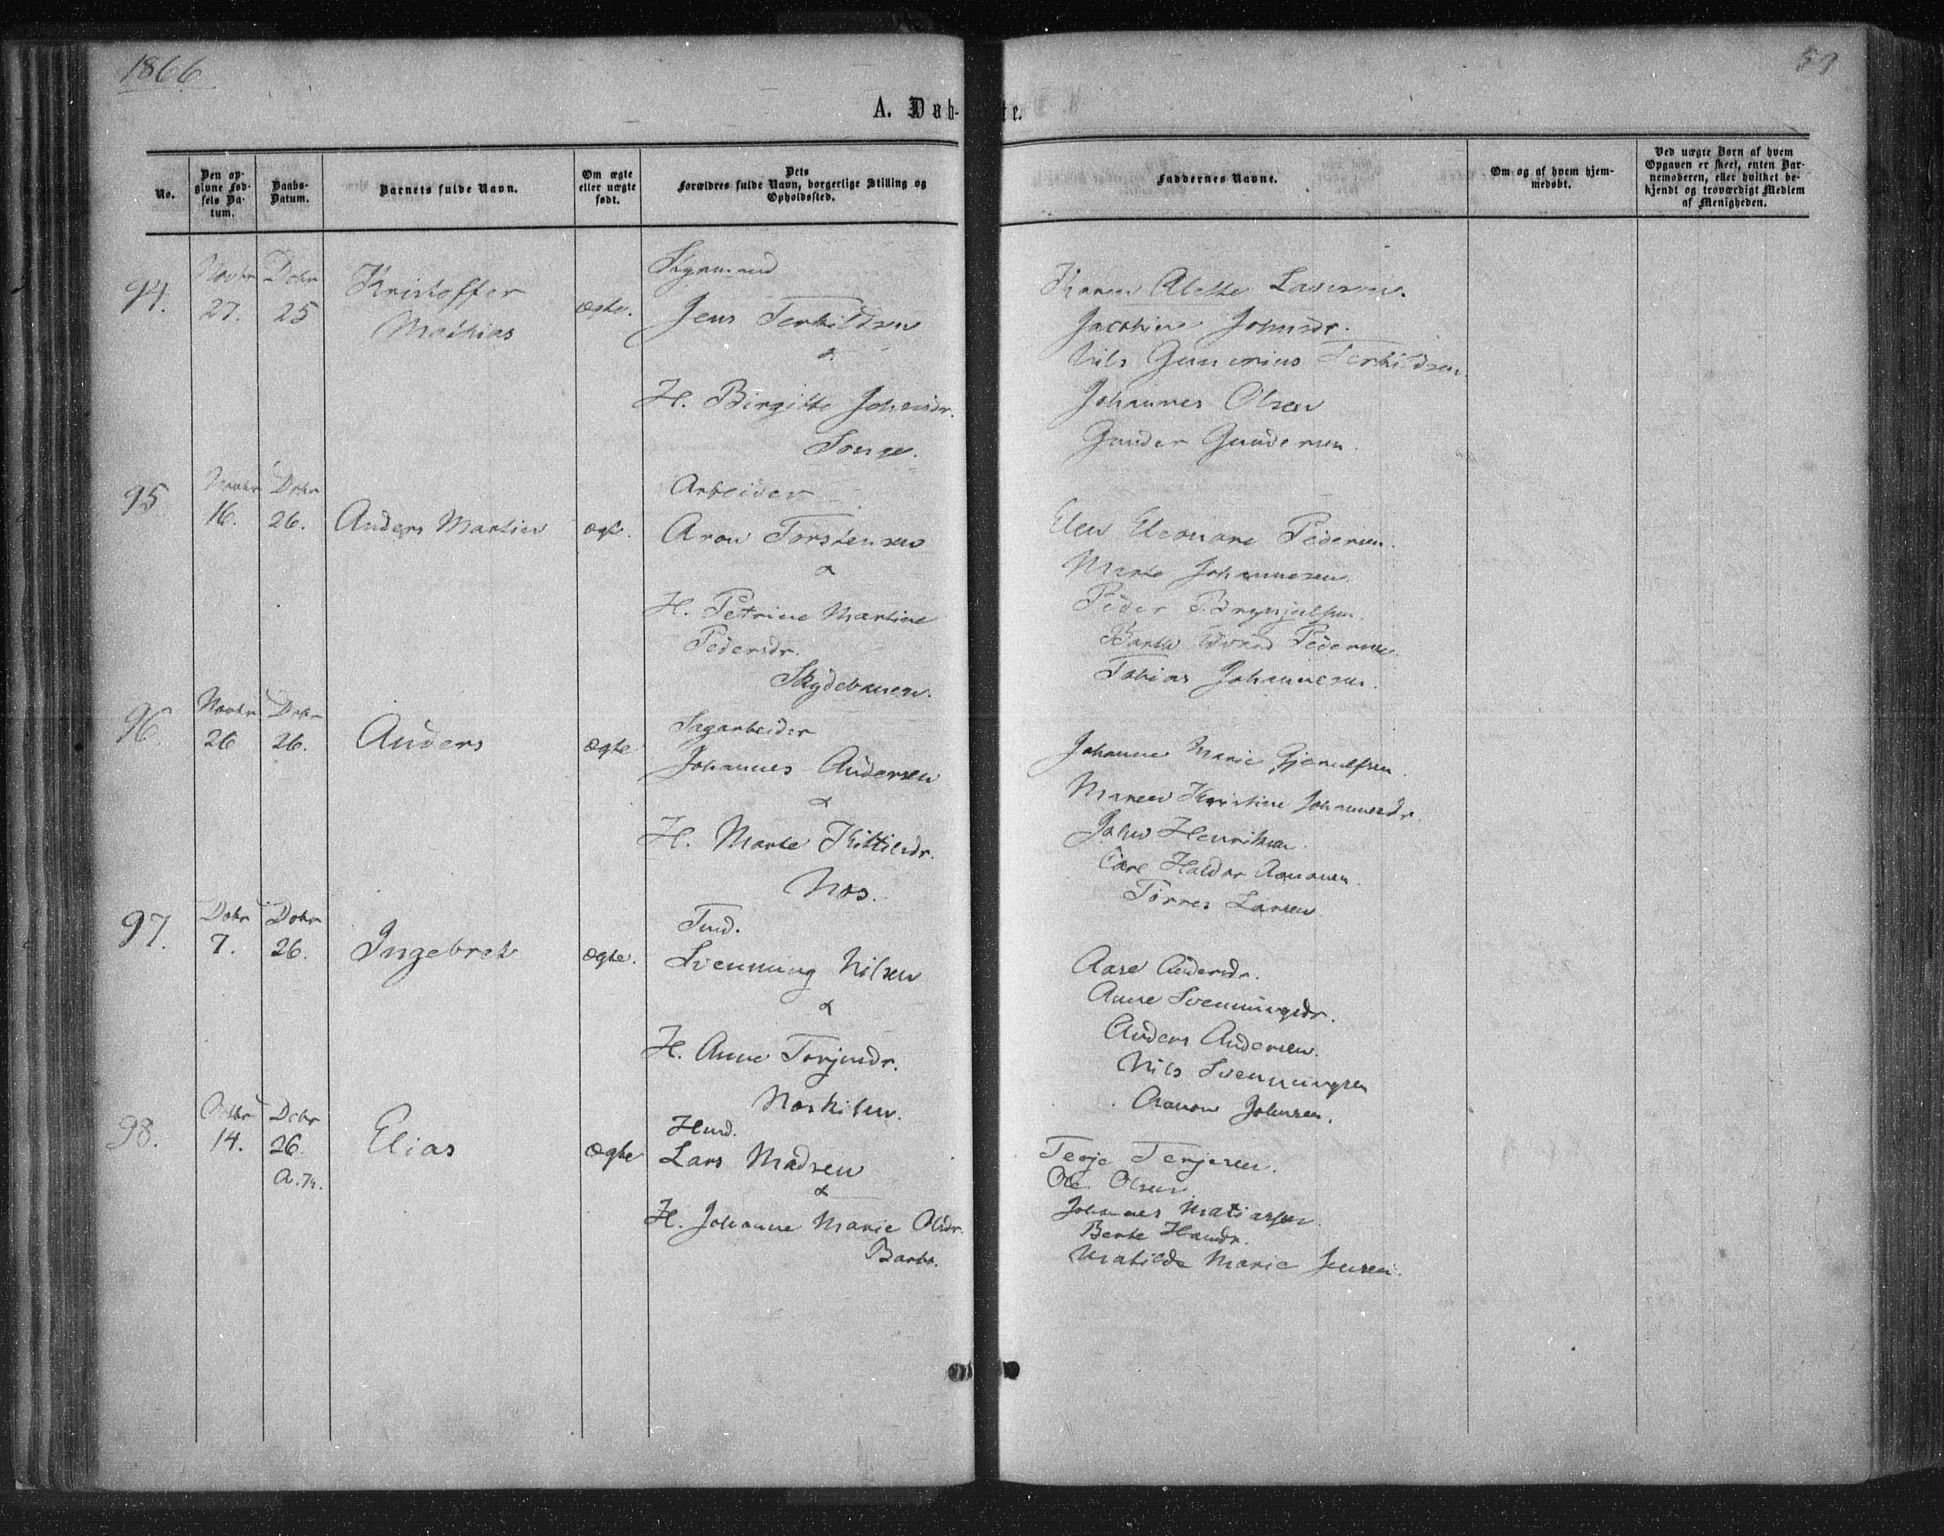 1866
59
A. Døb-te.
No.
Den op-
givne Fød-
sels Da-
tum.
Daabs-
Datum.
Barnets fulde Navn.
Om ægte
eller uægte
født.
Dets
Forældres fulde Navn, borgerlige Stilling og
Opholdssted.
Faddernes Navne.
Om og af hvem hjem-
medøbt.
Ved uægte Børn af hvem
Opgaven er skeet, enten Bar-
nemoderen, eller hvilket be-
kjendt og troværdigt Medlem
af Menigheden.
94.
Novbr
27.
Dcbr
25
Kristoffer
Mathias
ægte.
Jens Terkildsen
&
H. Birgitte Johnsdr.
Songe.
Karen Alette Laursen.
Jacobine Johnsdr.
Nils Gunerius Terkildsen.
Johannes Olsen
Gunder Gundersen.
95
Novbr
16.
Dcbr
26.
Anders Martin
ægte.
Arbeider
Aron Torstensen
&
H. Petrine Martine
Pedersdr.
Skydebanen.
Elen Eleonare Pedersen.
Marte Johannesen.
Peder Brynjulfsen.
Edvard Pedersen.
Tobias Johannesen.
96.
Novbr
26
Dcbr
26.
Anders
ægte
Sagarbeider
Johannes Andersen
&
H. Marte Kittilsdr.
Næs.
Johanne Marie Gjerulfsen.
Maren Kristine Johannesdr.
John Henriksen.
Carl Haldor Aanonsen.
Tørres Larsen
97.
Dcbr
7.
Dcbr
26.
Ingebret
ægte.
Svenning Nilsen
&
H. Anne Torjusdr.
Næskilen.
Aase Andersdr.
Anne Svenningsdr.
Anders Andersen.
Nils Svenningsen
Aanon Johnsen.
98.
14.
Dcbr
26.
Elias
ægte
Husd.
Lars Madsen
&
H. Johanne Marie Olsdr.
Barbo.
Terje Terjesen.
Ole Olsen
Johannes Matiassen.
Berte Hansdr.
Matilde Marie Jensen.